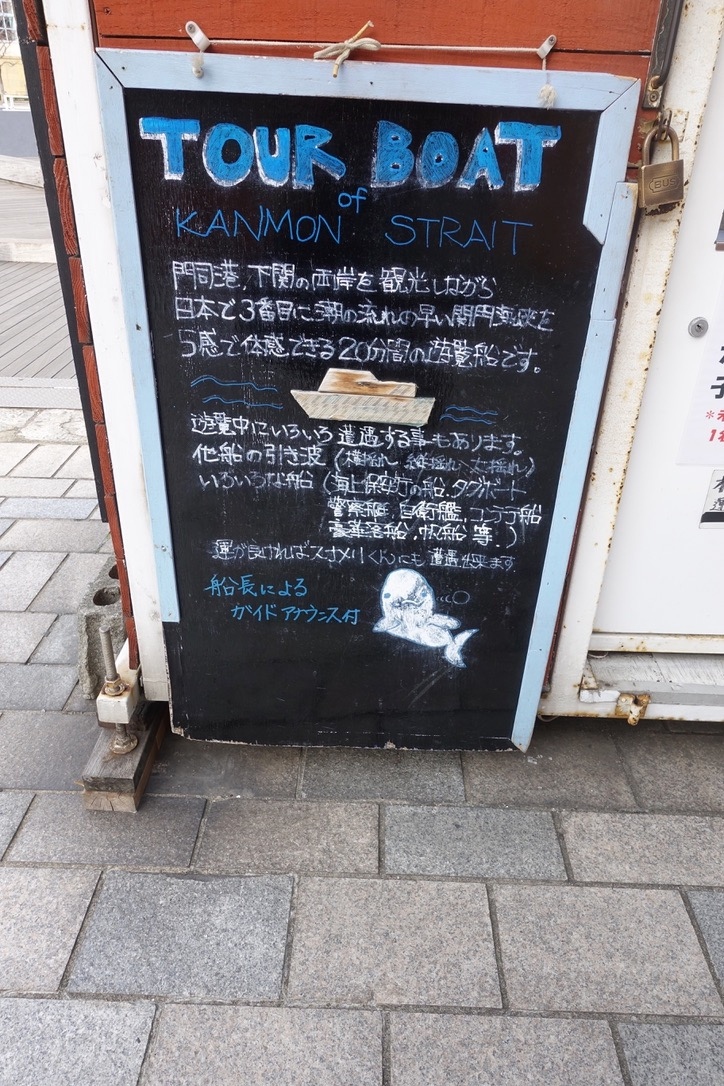 TOUR BOAT
of
KANMON STRAIT
門司港、下関の両岸を観光しながら
日本で3番目に潮の流れの早い関門海峡を
5感で体感できる20分間の遊覧船です。
遊覧中にいろいろ遭遇する事もあります。
他船の引き波(横揺れ 縦揺れ 大揺れ)
いろいろな船(海上保安庁の船、タグボート
警察艇、自衛艦、コンテナ船
豪華客船、帆船 等。)
運が良ければスナメリくんにも遭遇出来ます
船長による
ガイドアナウンス付
ABUS
子
1